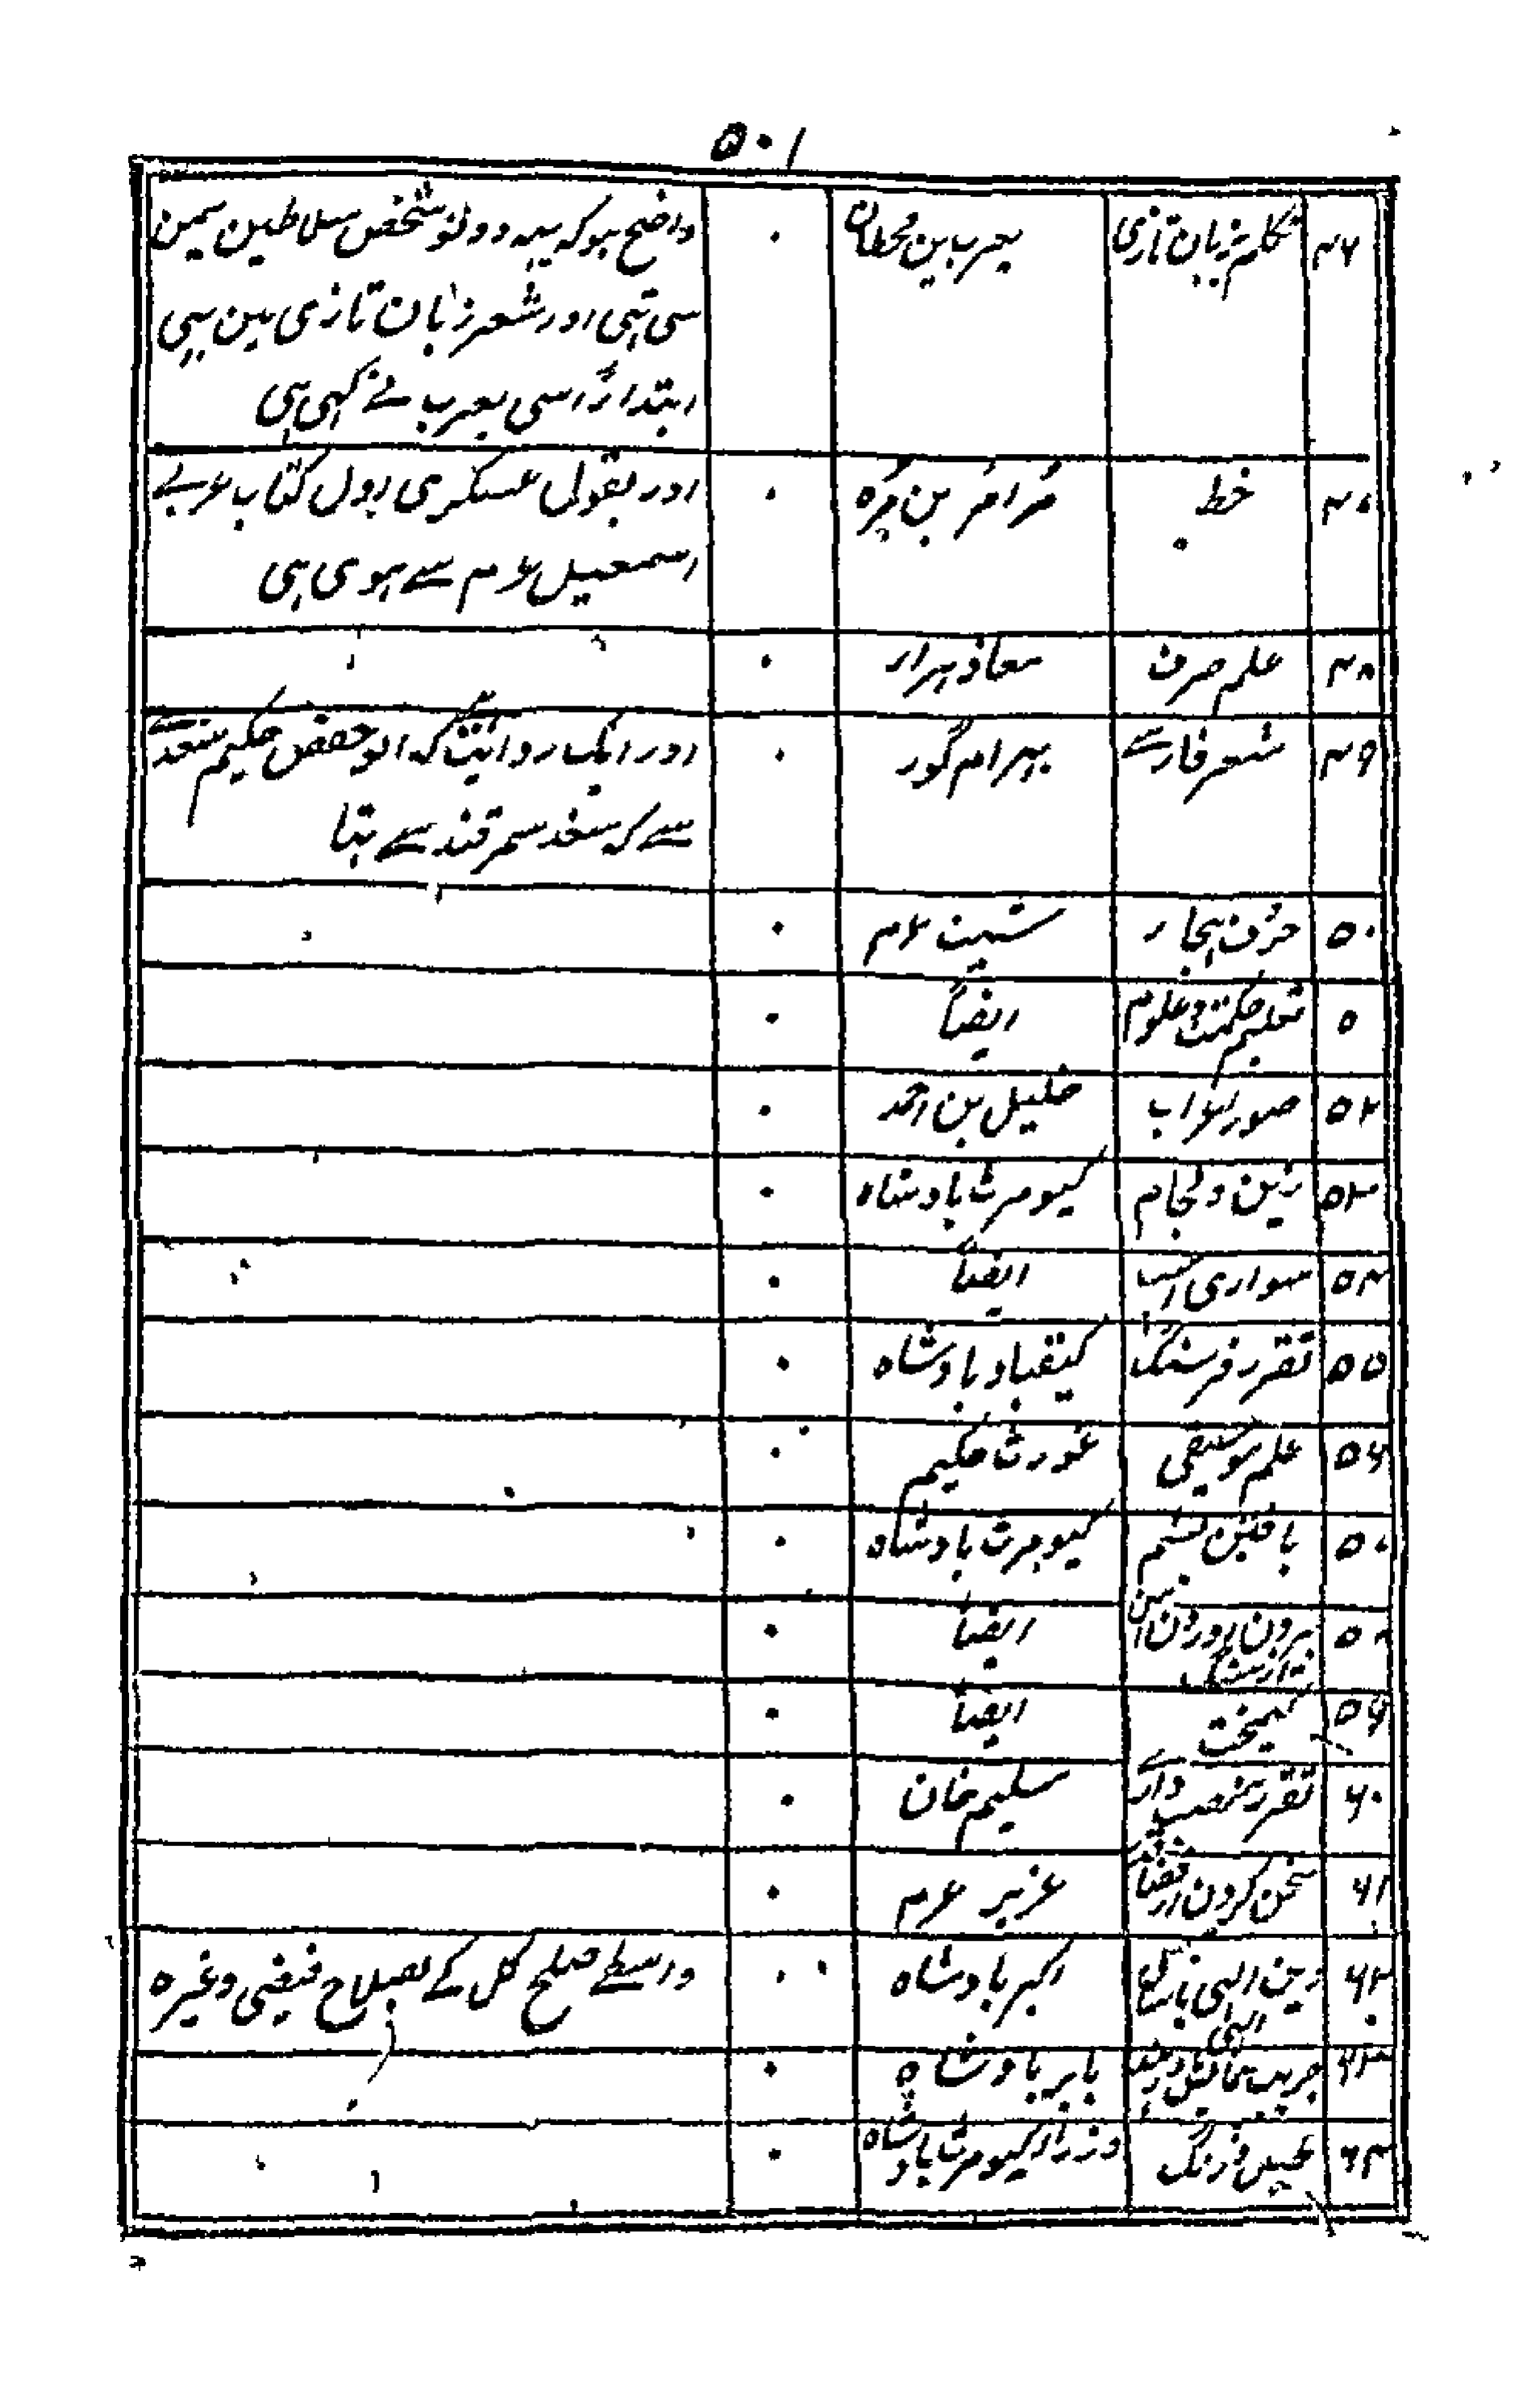 ۵۰۱
۴۶ تکلم بزبان تازی یعرب بن قحطان ۰ واضح ہو کہ یہہ دونو شخص سلاطین یمن
سی تہی اور شعر زبان تازی مین بہی
ابتداءً اسی یعرب نے کہی ہی
۴۷ خط مُرامُر بن مُرَّہ ۰ اور بقول عسکری اول کتاب عربے
اسمعیل ۴م سے ہوی ہی
۴۸ علم صرف معاذ ہرار ۰
۴۹ شعر فارسے بہرام گور ۰ اور ایک روایت کہ ابو حفص حکیم سغدے
سے کہ سغد سمرقند سے ہتا
۵۰ حرف ہجار شیث ۴م ۰
۵ تعلیم حکمت و علوم ایضاً ۰
۵۲ صور اعراب خلیل بن احمد ۰
۵۳ زین و لجام کیومرث بادشاہ ۰
۵۴ سواری اسب ایضاً ۰
۵۵ تقرر فرسنگ کیقباد بادشاہ ۰
۵۶ علم موسیقی غورث حکیم ۰
۵۷ بافتن پشم کیومرث بادشاہ ۰
۵۸ برون آوردن آہن
از سنگ ایضاً ۰
۵۹ کیمخت ایضاً ۰
۶۰ تقرر منصب دارے سلیم خان ۰
۶۱ سخن کردن از قضا عزیر ۴م ۰
۶۲ دین الہی اکبر بادشاہ ۰ واسطے صلح کل کے بصلاح فیضی وغیرہ
۶۳ جریب بابر بادشاہ ۰
۶۴ طبل و زنگ وزراء کیومرث بادشاہ ۰